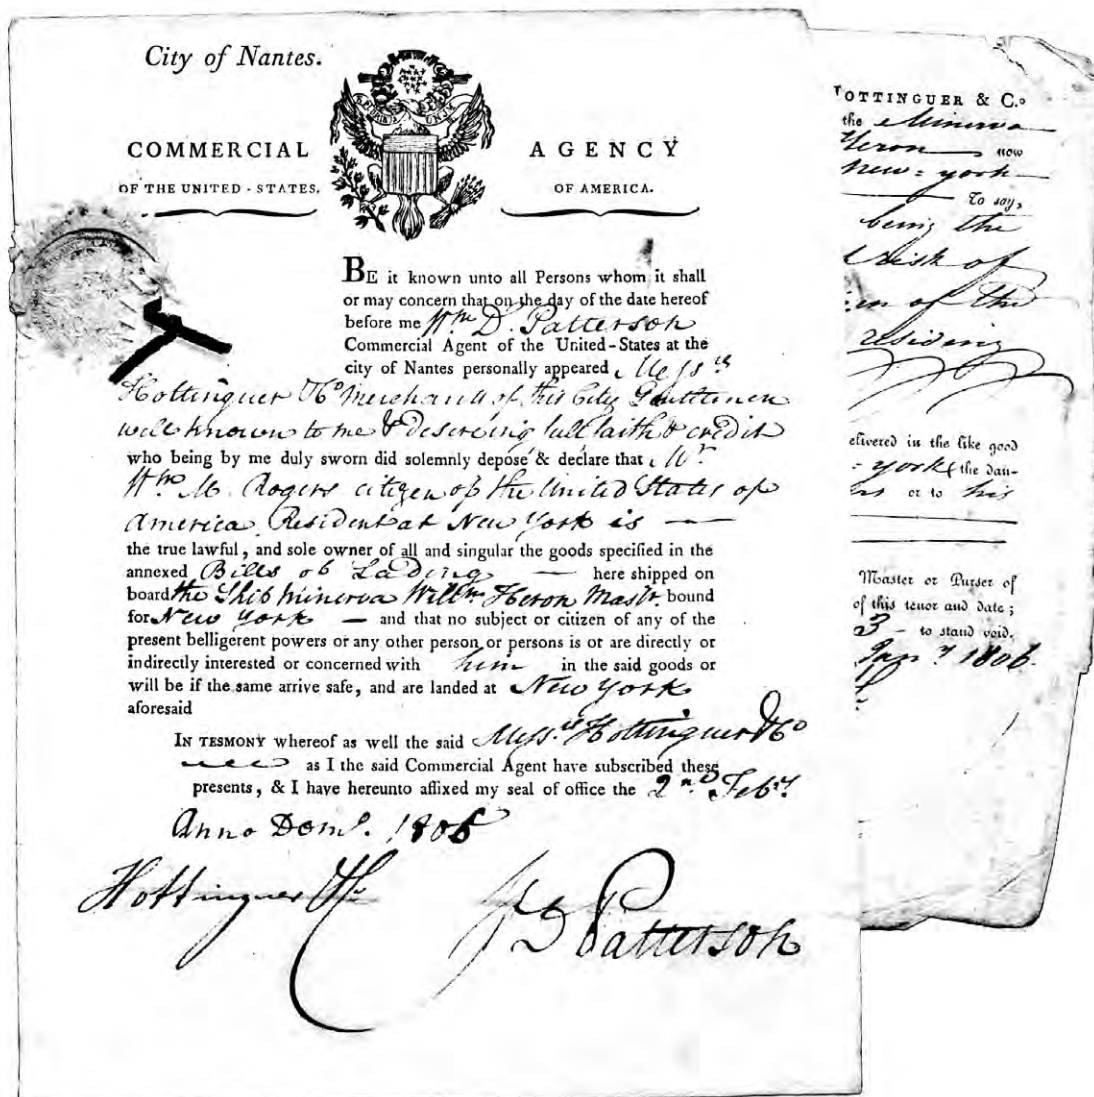 City of Nantes.
E PLURIBUS UNUM
COMMERCIAL AGENCY
OF THE UNITED-STATES. OF AMERICA.
BE it known unto all Persons whom it shall
or may concern that on the day of the date hereof
before me Wm D. Patterson
Commercial Agent of the United-States at the
city of Nantes personally appeared Messrs
Hottinguer & Co Merchants of this City Gentlemen
well known to me & deserving full faith & credit
who being by me duly sworn did solemnly depose & declare that Mr.
Wm M. Rogers citizen of the United States of
America, Resident at New York is —
the true lawful, and sole owner of all and singular the goods specified in the
annexed Bills of Lading — here shipped on
board the Ship Minerva Willm Heron Mastr. bound
for New York — and that no subject or citizen of any of the
present belligerent powers or any other person or persons is or are directly or
indirectly interested or concerned with him in the said goods or
will be if the same arrive safe, and are landed at New York
aforesaid
IN TESMONY whereof as well the said Messrs Hottinguer & Co
as I the said Commercial Agent have subscribed these
presents, & I have hereunto affixed my seal of office the 2nd. Feby.
Anno Domi. 1806
Hottinguer & Co
J D Patterson
OTTINGUER & C.o
the Minerva
Heron now
New=york
To say,
being the
risk of
of the
residing
elivered in the like good
= york (the dan-
or to his
Master or Purser of
of this tenor and date;
3 - to stand void.
Jany 1806.